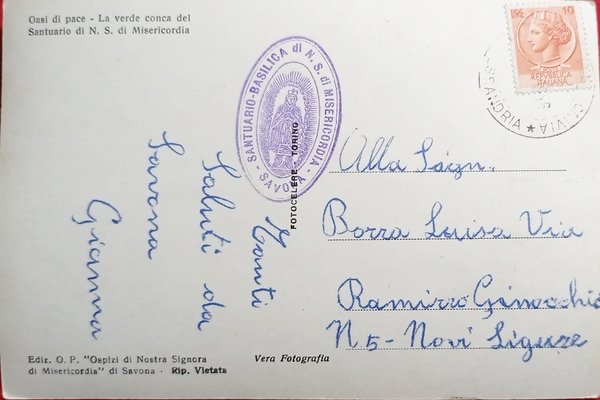 Oasi di pace - La verde conca del
Santuario di N. S. di Misericordia
LIRE 10
REPUBBLICA
ITALIANA
SANTUARIO-BASILICA di N. S. di MISERICORDIA
- SAVONA -
FOTOCELERE - TORINO
Tanti
Saluti da
Savona
Gianna
Alla Sign.
Borra Luisa Via
Ramirro Ginocchio
N 5 - Novi Ligure
Ediz. O. P. "Ospizi di Nostra Signora
di Misericordia" di Savona - Rip. Vietata
Vera Fotografia